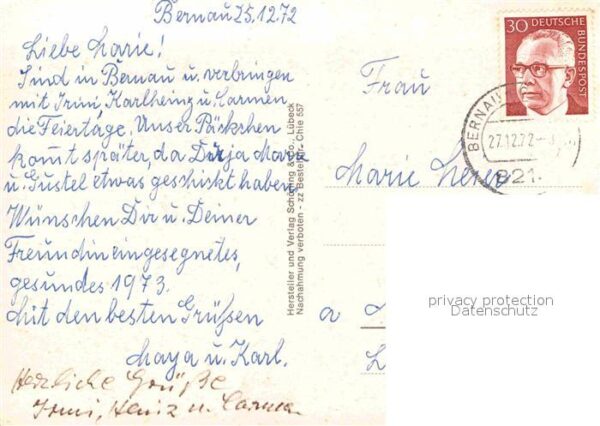 Bernau 25.12.72
Liebe Marie!
Sind in Bernau u. verbringen
mit Irmi Karlheinz u. Carmen
die Feiertage. Unser Päckchen
kommt später, da Dir ja Maria
u. Gustel etwas geschickt haben.
Wünschen Dir u. Deiner
Freundin ein gesegnetes,
gesundes 1973.
Mit den besten Grüßen
Maya u. Karl.
Herzliche Grüße
Irmi, Heinz u. Carmen
Hersteller und Verlag Schöning & Co., Lübeck
Nachahmung verboten - zz Bestell-Nr. Chie 557
30 DEUTSCHE
BUNDESPOST
BERNAU
27.12.72
821
Frau
Marie
privacy protection
Datenschutz